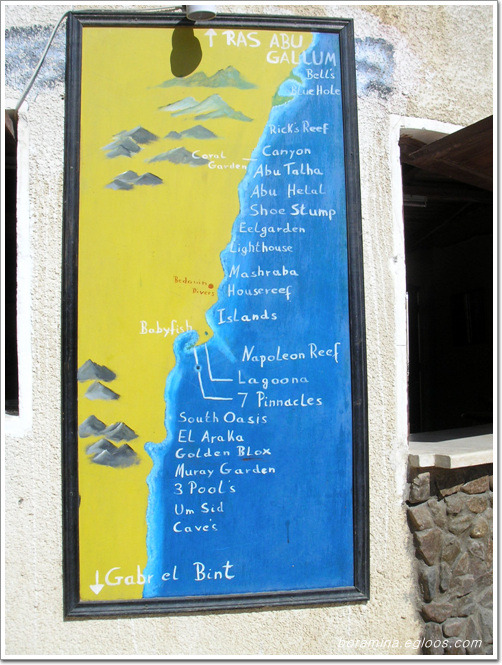 ↑ RAS ABU
GALLUM
Bell's
Blue Hole
Rick's Reef
Canyon
Coral
Garden
Abu Talha
Abu Helal
Shoe Stump
Eelgarden
Lighthouse
Mashraba
Bedouin
Divers
Housereef
Islands
Babyfish
Napoleon Reef
Lagoona
7 Pinnacles
South Oasis
El Araka
Golden Blox
Muray Garden
3 Pool's
Um Sid
Cave's
↓ Gabr el Bint
boremina.egloos.com